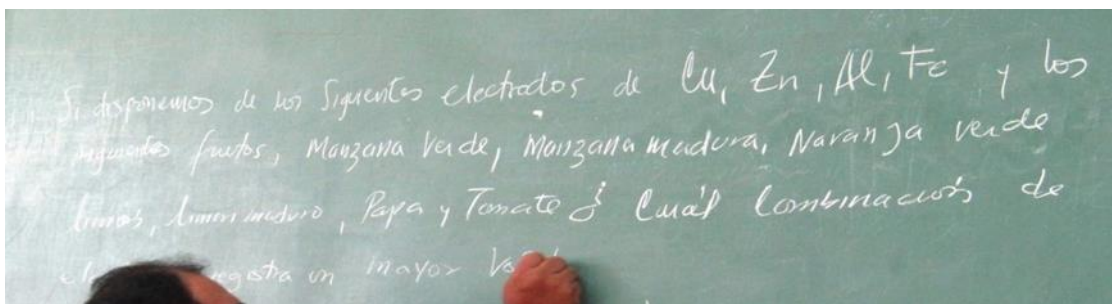 Si disponemos de los Siguientes electrodos de Cu, Zn, Al, Fe y los
siguientes frutos, Manzana verde, Manzana madura, Naranja verde
limon, limon maduro, Papa y Tomate ¿ Cuál Combinación de
registra un mayor